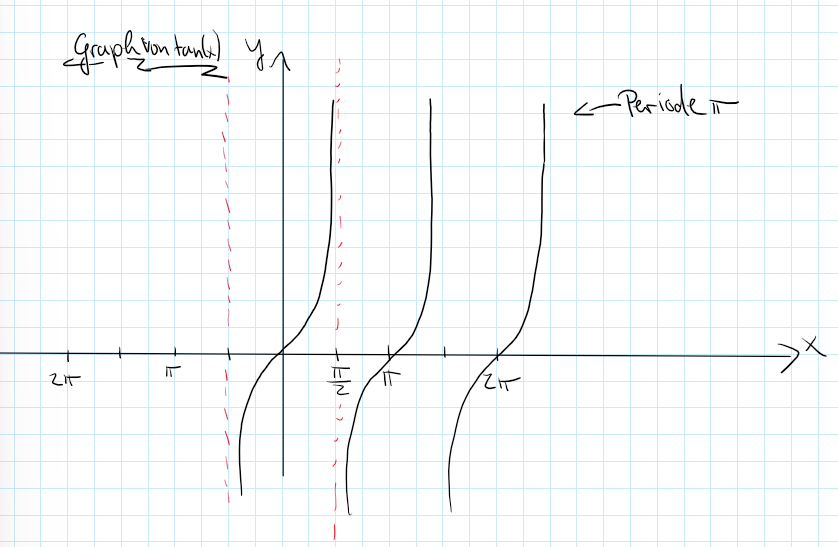 Graph von tan(x)
y
← Periode π
x
2π
π
π/2
π
2π